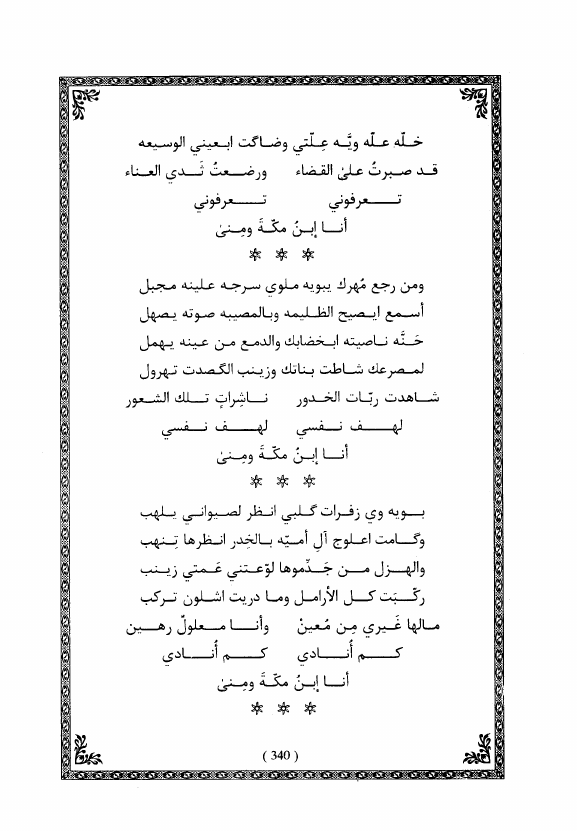 خلّه علّه ويَّه عِلّتي وضاگت ابعيني الوسيعه
قد صبرتُ على القضاء ورضعتُ ثَدي العناء
تعرفوني تعرفوني
أنا إبنُ مكّةَ ومِنىٰ
ومن رجع مُهرك يبويه ملوي سرجه علينه مجبل
أسمع ايصيح الظليمه وبالمصيبه صوته يصهل
حَنَّه ناصيته ابخضابك والدمع من عينه يهمل
لمصرعك شاطت بناتك وزينب الگصدت تهرول
شاهدت ربّات الخدور ناشِراتٍ تلك الشعور
لهف نفسي لهف نفسي
أنا إبنُ مكّةَ ومِنىٰ
بويه وي زفرات گلبي انظر لصيواني يلهب
وگامت اعلوج آلِ أميّه بالخِدر انظرها تِنهب
والهزل من جَدّموها لوّعتني عَمتي زينب
ركّبَت كل الأرامل وما دريت اشلون تركب
مالها غَيري مِن مُعينْ وأنا معلولٌ رهين
كم أُنادي كم أُنادي
أنا إبنُ مكّةَ ومِنىٰ
( 340 )